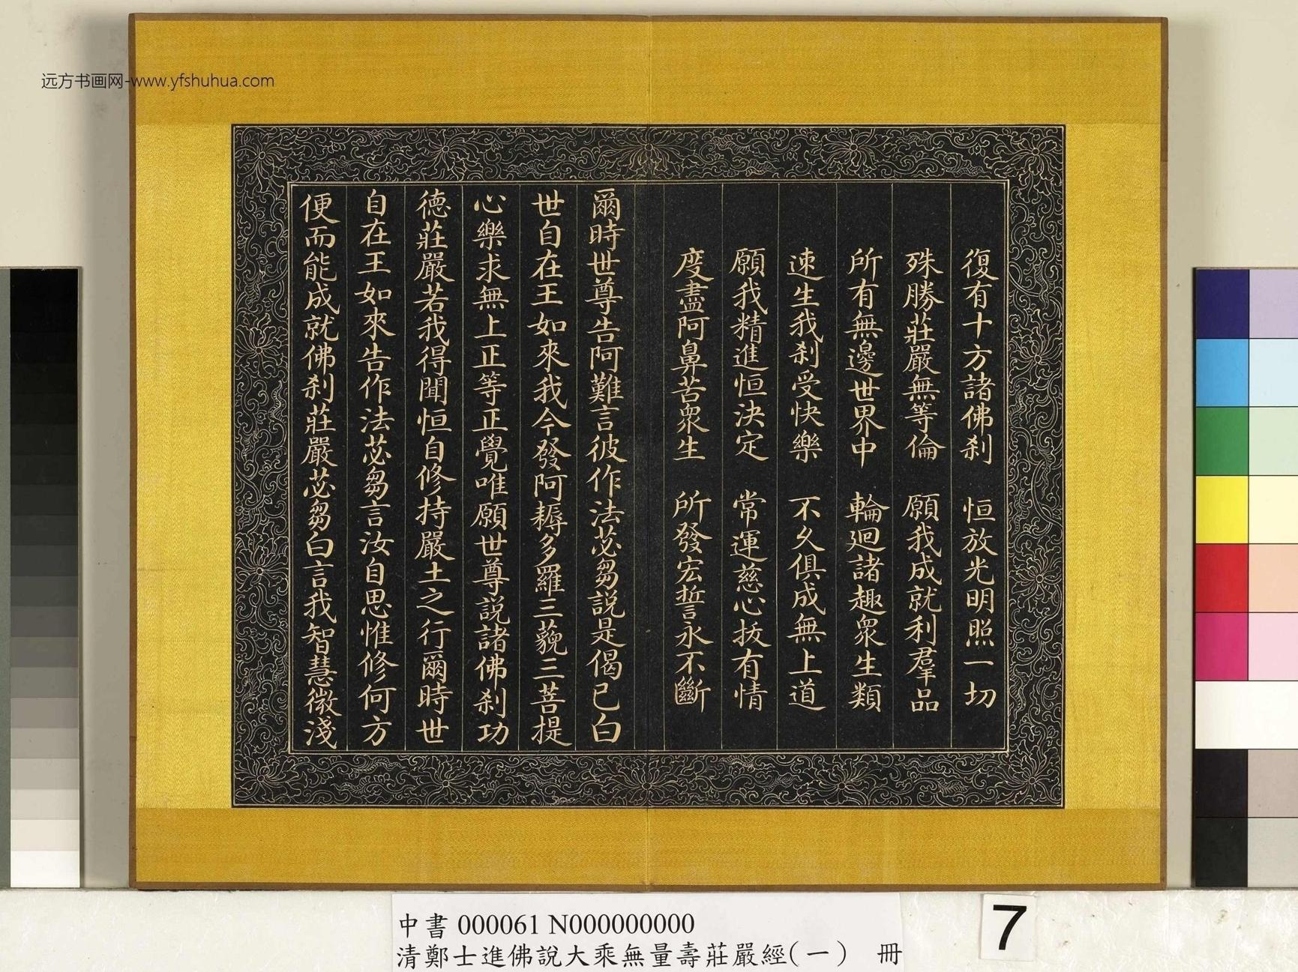 远方书画网-www.yfshuhua.com
復有十方諸佛刹　恒放光明照一切
殊勝莊嚴無等倫　願我成就利羣品
所有無邊世界中　輪廻諸趣衆生類
速生我刹受快樂　不久俱成無上道
願我精進恒決定　常運慈心拔有情
度盡阿鼻苦衆生　所發宏誓永不斷
爾時世尊告阿難言彼作法苾芻説是偈已白
世自在王如來我今發阿耨多羅三藐三菩提
心樂求無上正等正覺唯願世尊説諸佛刹功
德莊嚴若我得聞恒自修持嚴土之行爾時世
自在王如來告作法苾芻言汝自思惟修何方
便而能成就佛刹莊嚴苾芻白言我智慧微淺
中書 000061 N000000000
清鄭士進佛說大乘無量壽莊嚴經(一)　冊
7